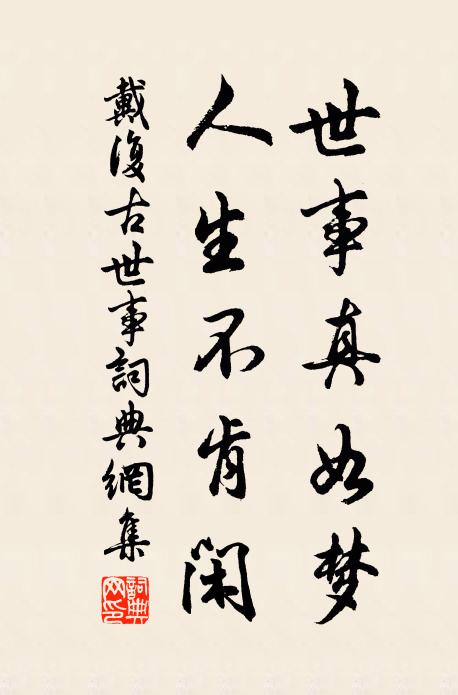 世事真如梦
人生不肯闲
戴復古世事詞典網集
詞典網印